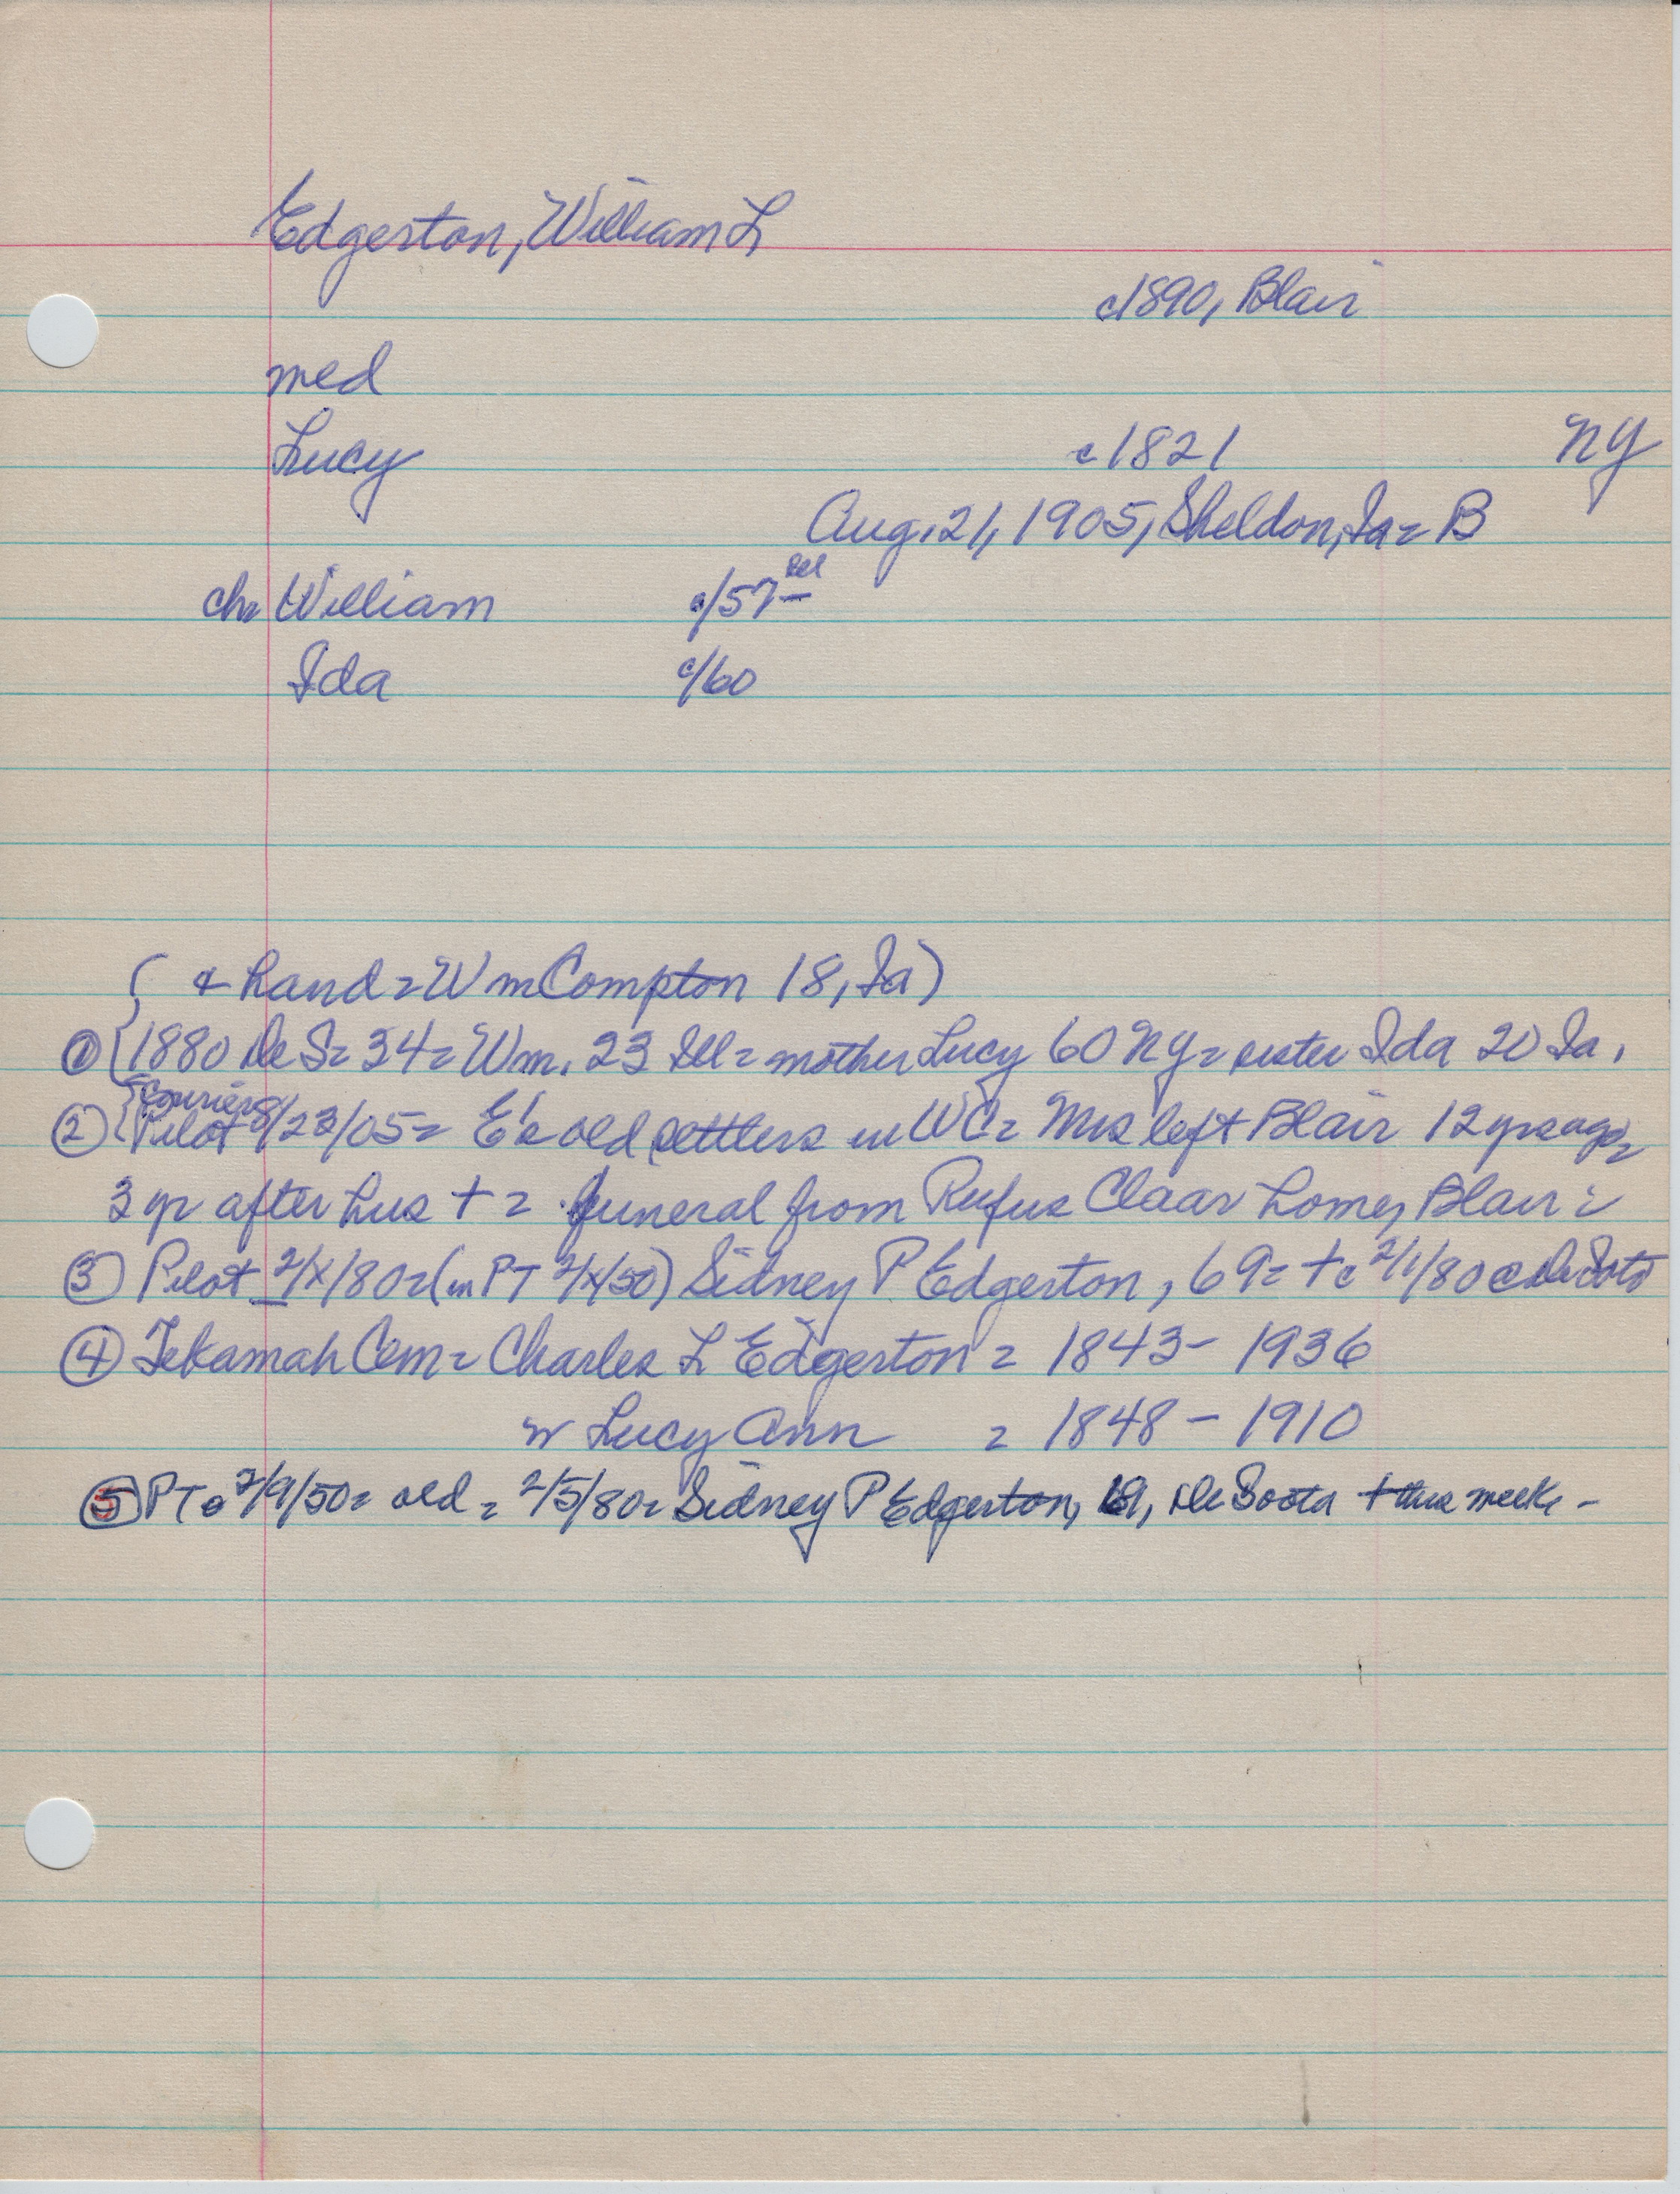 Edgerton, William L
c1890, Blair
med
Lucy c1821 NY
Aug. 21, 1905, Sheldon, Ia = B
ch = William c/57 Ill
Ida c/60
( + hand = Wm Compton 18, Ia )
① 1880 De S = 34 = Wm. 23 Ill = mother Lucy 60 NY = sister Ida 20 Ia.
Courier
② Pilot 8/23/05 = E's old settlers in WC = Mrs left Blair 12 yrs ago =
3 yr after hus + = funeral from Rufus Claar home, Blair =
③ Pilot 2/X/80 = (in PT 2/X/50) Sidney P Edgerton, 69 = + c 2/1/80 @ De Soto
④ Tekamah Cem = Charles L Edgerton = 1843 - 1936
w Lucy Ann = 1848 - 1910
⑤ PT = 2/9/50 = old = 2/5/80 = Sidney P Edgerton, 69, De Soota + this week -